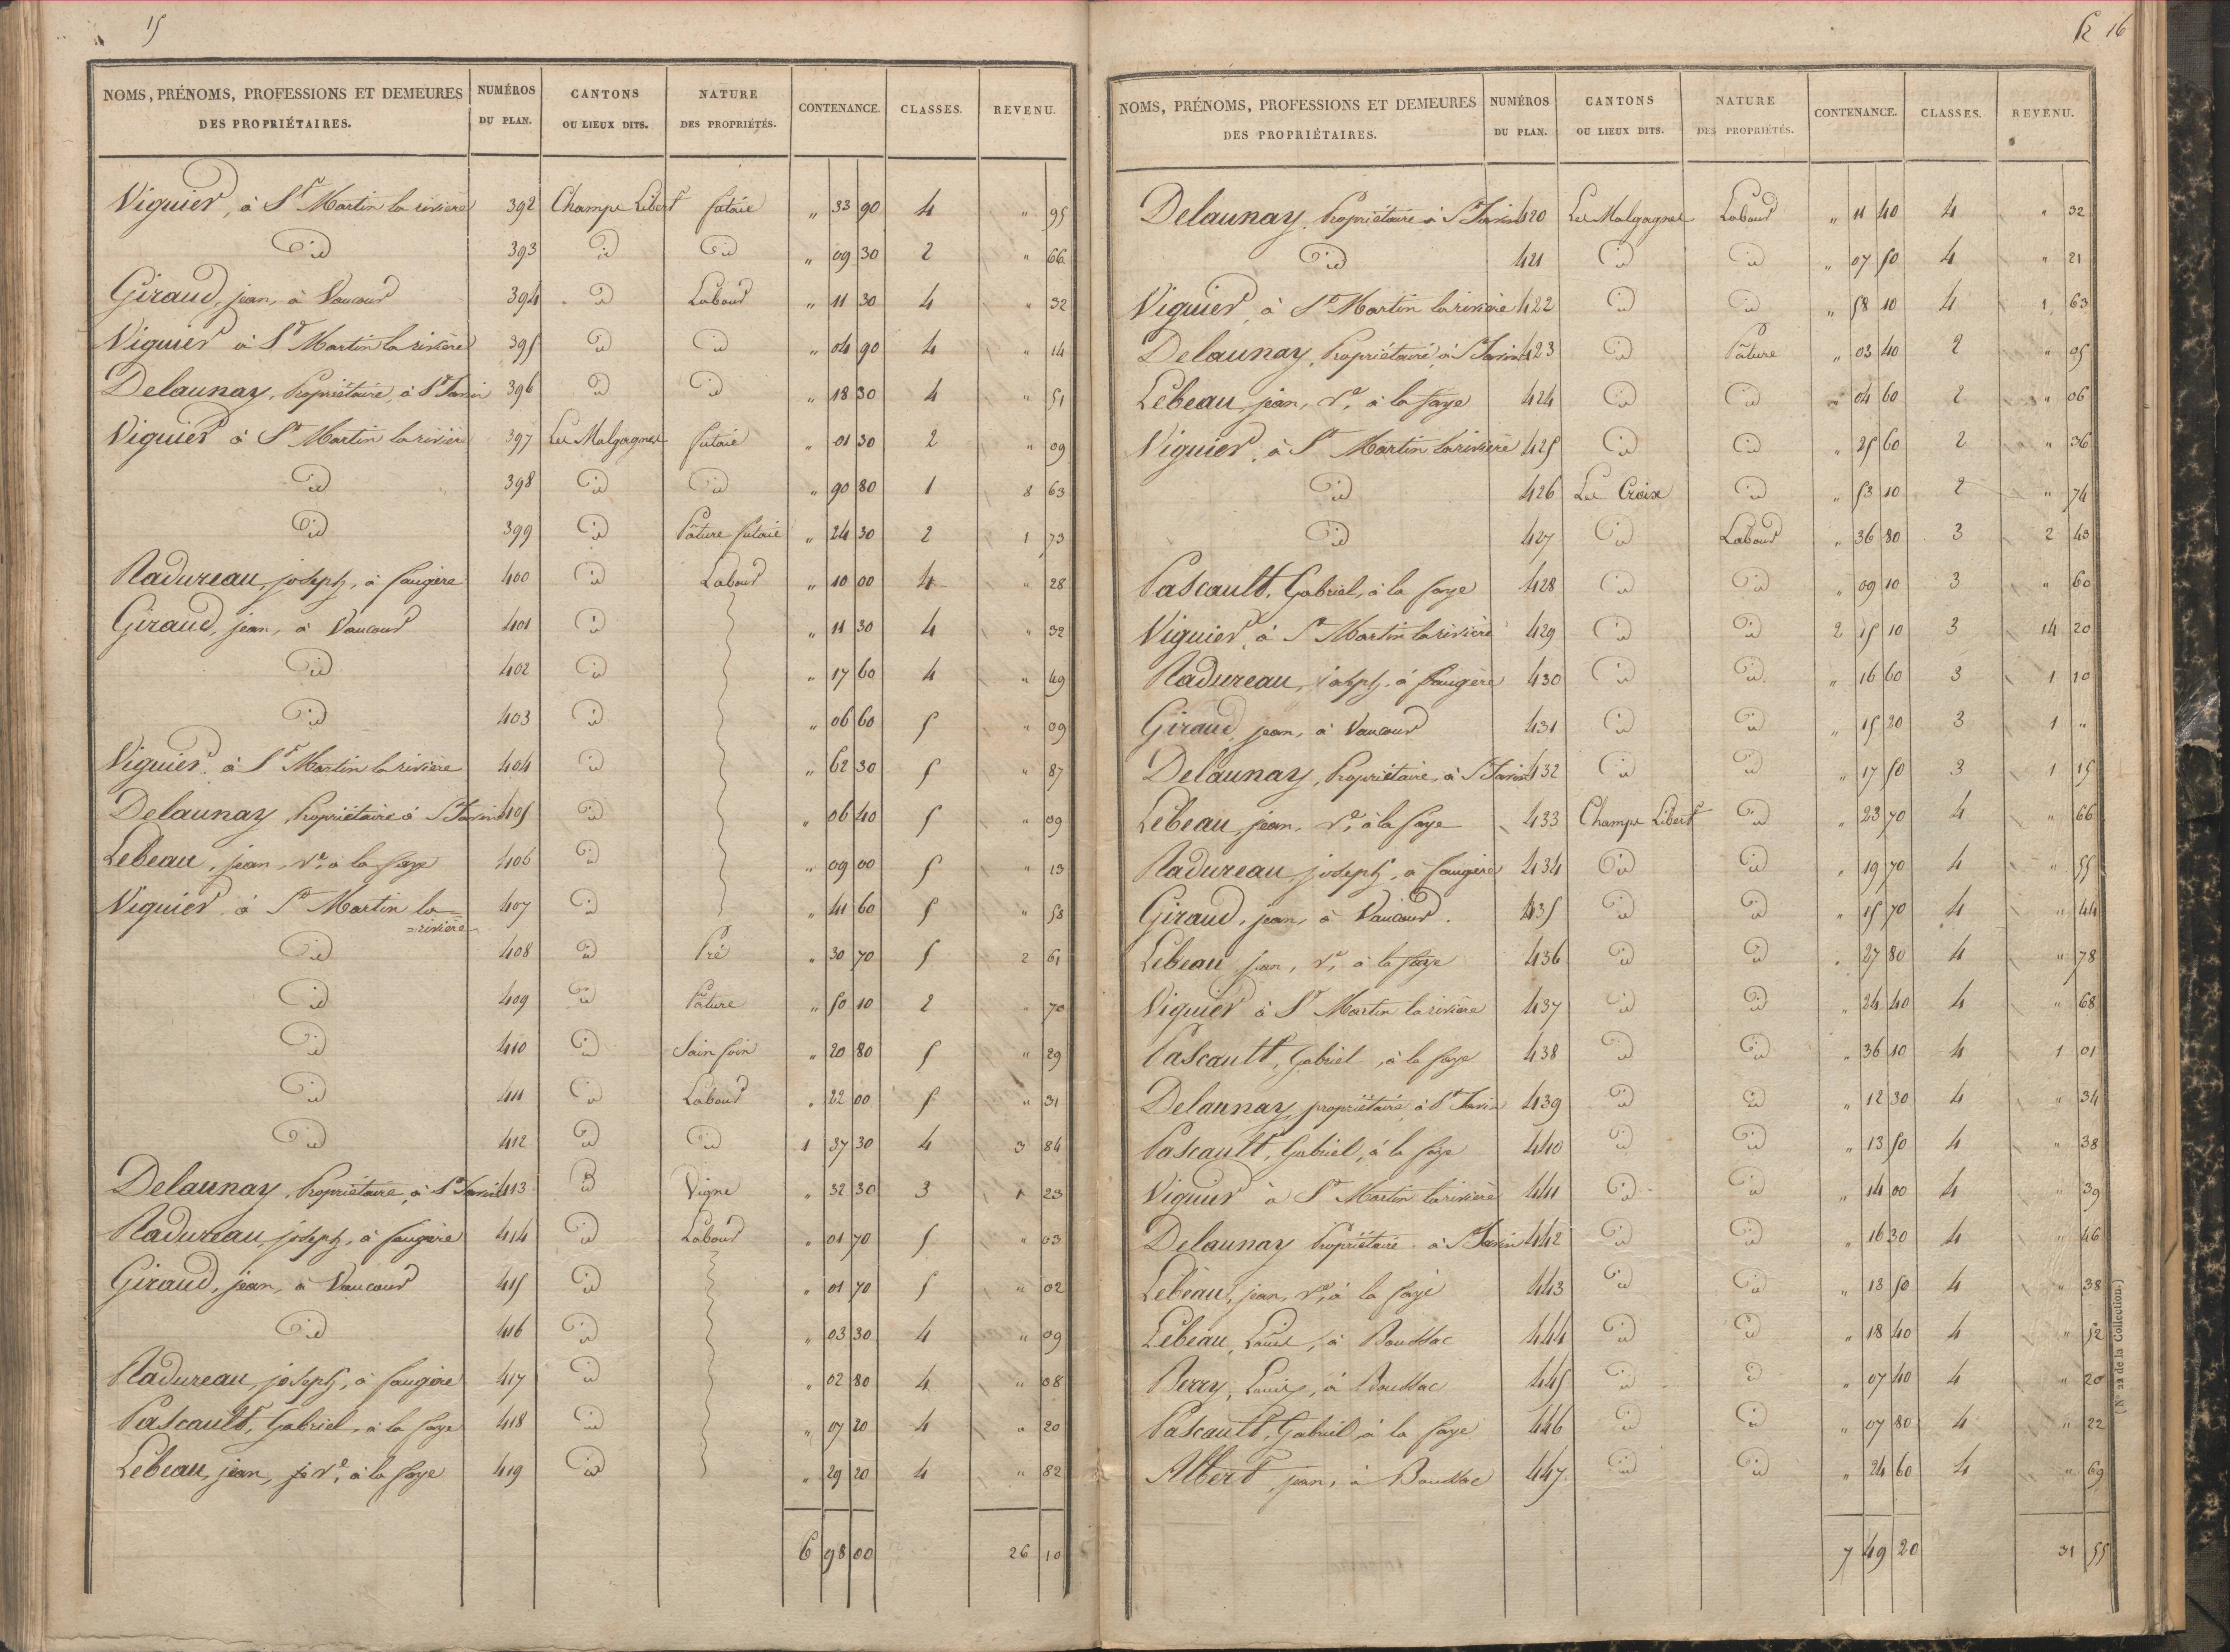 15
NOMS, PRÉNOMS, PROFESSIONS ET DEMEURES DES PROPRIÉTAIRES. NUMÉROS DU PLAN. CANTONS OU LIEUX DITS. NATURE DES PROPRIÉTÉS. CONTENANCE. CLASSES. REVENU.
Viguier, à St Martin la rivière 392 Champs Libert futaie " 33 90 4 " 95
Did 393 id id " 09 30 2 " 66
Giraud, jean, à Vaucour 394 id Labour " 11 30 4 " 32
Viguier à St Martin la rivière 395 id id " 04 90 4 " 14
Delaunay, Propriétaire, à St Savin 396 id id " 18 30 4 " 51
Viguier à St Martin la rivière 397 Les Malgagnes futaie " 01 30 2 " 09
Did 398 id id " 90 80 1 8 63
Did 399 id Pâture futaie " 24 30 2 1 73
Nadureau, joseph, à faugère 400 id Labour " 10 00 4 " 28
Giraud, jean, à Vaucour 401 id " 11 30 4 " 32
id 402 id " 17 60 4 " 49
id 403 id " 06 60 5 " 09
Viguier, à St Martin la rivière 404 id " 62 30 5 " 87
Delaunay, Propriétaire à St Savin 405 id " 06 40 5 " 09
Lebeau, jean, Ve, à la faye 406 id " 09 00 5 " 13
Viguier à St Martin la = 407 id " 41 60 5 " 58
= rivière
Did 408 id Pré " 30 70 5 2 61
id 409 id Pâture " 50 10 2 " 70
id 410 id Sain foin " 20 80 5 " 29
id 411 id Labour " 22 00 5 " 31
Did 412 id id 1 37 30 4 3 84
Delaunay, Propriétaire, à St Savin 413 id Vigne " 32 30 3 1 23
Nadureau, joseph, à faugère 414 id Labour " 01 70 5 " 03
Giraud, jean, à Vaucour 415 id " 01 70 5 " 02
Did 416 id " 03 30 4 " 09
Nadureau, joseph, à faugère 417 id " 02 80 4 " 08
Pascault, Gabriel, à la faye 418 id " 07 20 4 " 20
Lebeau, jean, Ve, à la faye 419 id " 29 20 4 " 82
6 98 00 26 10
16
NOMS, PRÉNOMS, PROFESSIONS ET DEMEURES DES PROPRIÉTAIRES. NUMÉROS DU PLAN. CANTONS OU LIEUX DITS. NATURE DES PROPRIÉTÉS. CONTENANCE. CLASSES. REVENU.
Delaunay, Propriétaire à St Savin 420 Les Malgagnes Labour " 11 40 4 " 32
Did 421 id id " 07 50 4 " 21
Viguier, à St Martin la rivière 422 id id " 58 10 4 1 63
Delaunay, Propriétaire, à St Savin 423 id Pâture " 03 40 2 " 05
Lebeau, jean, Ve, à la faye 424 id id " 04 60 2 " 06
Viguier, à St Martin la rivière 425 id id " 25 60 2 " 36
Did 426 La Croix id " 53 10 2 " 74
Did 427 id Labour " 36 80 3 2 43
Pascault, Gabriel, à la faye 428 id id " 09 10 3 " 60
Viguier, à St Martin la rivière 429 id id 2 15 10 3 14 20
Nadureau, joseph, à faugère 430 id id " 16 60 3 1 10
Giraud, jean, à Vaucour 431 id id " 15 20 3 1 "
Delaunay, Propriétaire, à St Savin 432 id id " 17 50 3 1 15
Lebeau, jean, Ve, à la faye 433 Champs Libert id " 23 70 4 " 66
Nadureau joseph, à faugère 434 id id " 19 70 4 " 55
Giraud, jean, à Vaucour. 435 id id " 15 70 4 " 44
Lebeau jean, Ve, à la faye 436 id id " 27 80 4 " 78
Viguier à St Martin la rivière 437 id id " 24 40 4 " 68
Pascault, Gabriel, à la faye 438 id id " 36 10 4 1 01
Delaunay, propriétaire à St Savin 439 id id " 12 30 4 " 34
Pascault, Gabriel, à la faye 440 id id " 13 50 4 " 38
Viguier à St Martin la rivière 441 id id " 14 00 4 " 39
Delaunay Propriétaire à St Savin 442 id id " 16 30 4 " 46
Lebeau, jean, Ve, à la faye 443 id id " 13 50 4 " 38
Lebeau, Louis, à Bouddac 444 id id " 18 40 4 " 52
Berry, Louis, à Bouddac 445 id id " 07 40 4 " 20
Pascault, Gabriel à la faye 446 id id " 07 80 4 " 22
Albert jean, à Bouddac 447 id id " 24 60 4 " 69
7 49 20 31 55
(N° 22 de la Collection.)